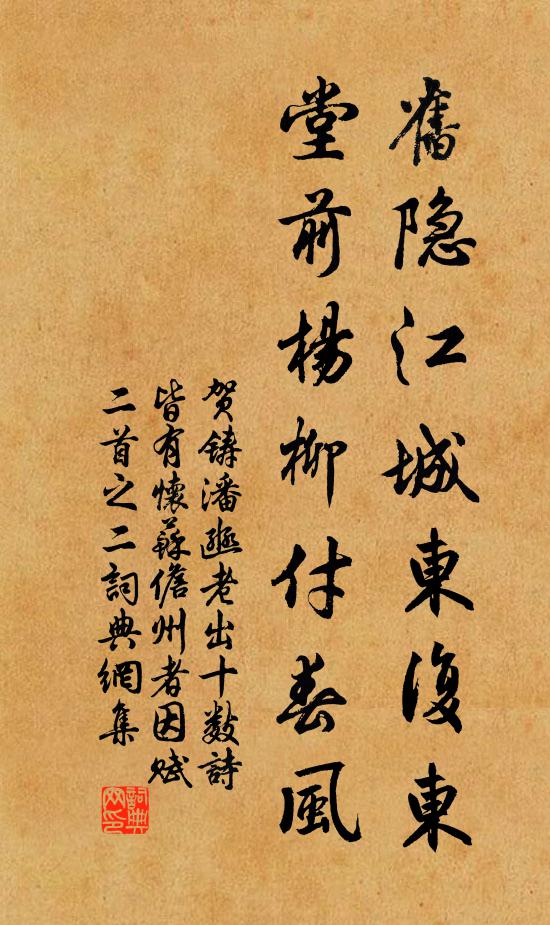 舊隐江城東復東
堂前楊柳付春風
贺鑄潘邂老出十數詩
皆有懷蘇儋州者因赋
二首之二詞典網集
詞典网印